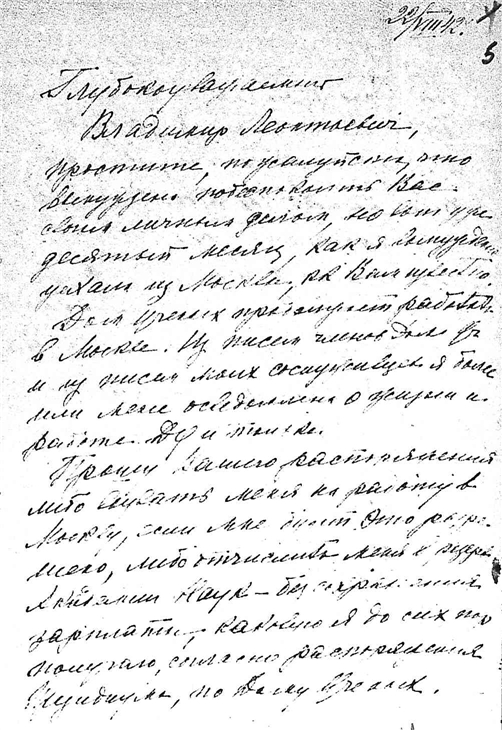 22/VIII 42.
5
Глубокоуважаемый
Владимир Леонтьевич,
простите, пожалуйста, что
вынуждена побеспокоить Вас
своим личным делом, но вот уже
десятый месяц, как я вынужденно
уехала из Москвы, как Вам известно
Дом Ученых продолжает работать
в Москве. Из писем членов Дома Уч
и из писем моих сослуживцев я более
или менее осведомлена о жизни и
работе ДУ и
Прошу Вашего распоряжения
либо вызвать меня на работу в
Москву, если мне будет это разре-
шено, либо отчислить меня в резерв
Академии Наук – без сохранения
зарплаты, каковую я до сих пор
получаю, согласно распоряжения
Президиума, по Дому Ученых.